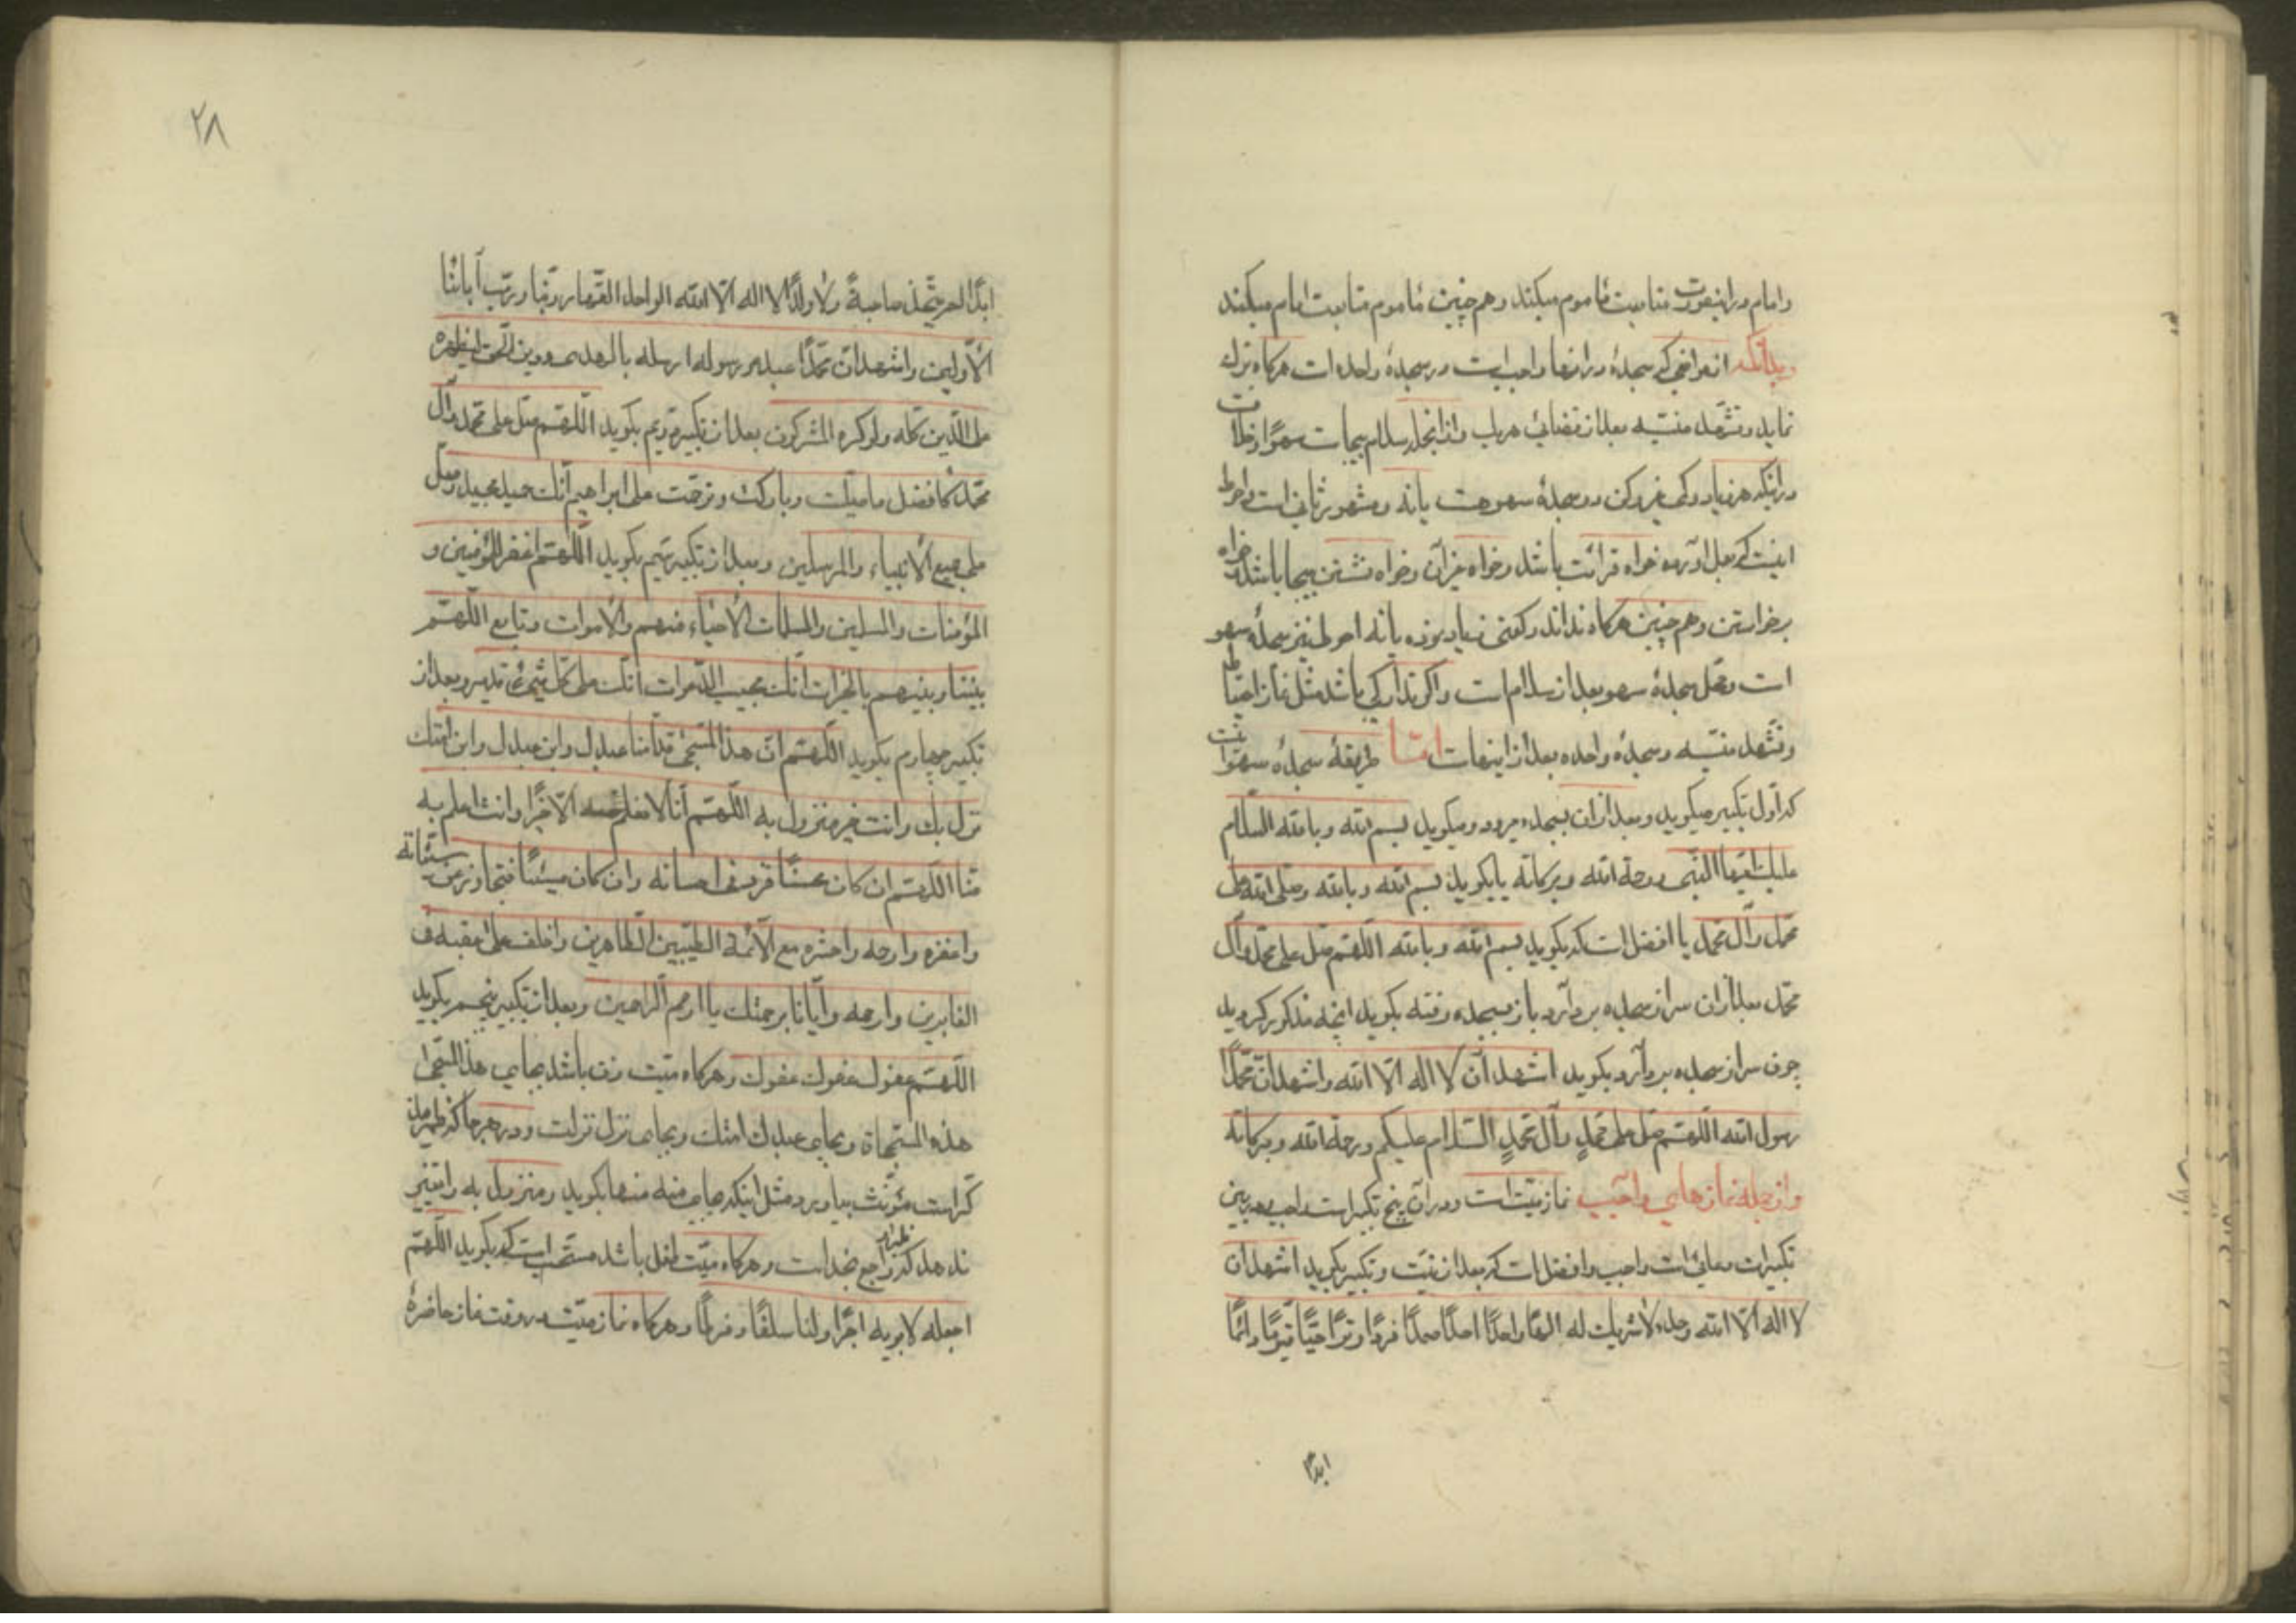 وامام در اینصورت متابعت مأموم میکند وهم چنین مأموم متابعت امام میکند
وبدانکه از مواضعی که سجدهٔ در انها واجبست در سجدهٔ واحده است هرکاه ترک
نماید وتشهد منسیه بعد از قضائی هریک وازانجمله سلام بیجاست سهوًا وخلافست
در اینکه هر زیاد وکمی غیر رکن دو سجدهٔ سهو هست یا نه ومشهور ثانی است واحوط
اینست که بعمل اورده خواه قرائت باشد وخواه غیر آن وخواه نشستن بیجا باشد وخواه
برخواستن وهم چنین هرکاه نداند رکعتی زیاد بوده یا نه احوط نیز سجدهٔ سهو
است ومحل سجدهٔ سهو بعد از سلام است واکر تدارکی باشد مثل نماز احتیاط
وتشهد منسیه وسجدهٔ واحده بعد از اینهاست امّا طریقهٔ سجدهٔ سهو انست
که اوّل تکبیر میکوید وبعد ازان بسجده میرود ومیکوید بسم الله وبالله السّلام
علیک ایّها النّبی ورحمة الله وبرکاته یا بکوید بسم الله وبالله وصلی الله علی
محمّد وآل محمّد یا افضل است که بکوید بسم الله وبالله اللّهمّ صلّ علی محمّد وآل
محمّد بعد ازان سر از سجده بردارد باز بسجده رفته بکوید انچه مذکور کردید
چون سر از سجده بردارد بکوید اشهد ان لا اله الّا الله واشهد انّ محمّدًا
رسول الله اللّهمّ صلّ علی محمّدٍ وآل محمّدٍ السّلام علیکم ورحمة الله وبرکاته
واز جمله نمازهای واجب نماز میّت است ودر آن پنج تکبیر است واجب ودر بین
تکبیرات دعائی است واجب وافضل است که بعد از نیّت وتکبیر بکوید اشهد ان
لا اله الّا الله وحده لا شریک له الهًا واحدًا احدًا صمدًا فردًا وترًا حیًّا قیّومًا دائمًا
ابدًا
۲۸
ابدًا لم یتّخذ صاحبةً ولا ولدًا لا اله الّا الله الواحد القهّار ربّنا وربّ آبائنا
الأوّلین واشهد انّ محمّدًا عبده ورسوله ارسله بالهدی ودین الحقّ لیظهره
علی الدّین کلّه ولو کره المشرکون بعد از تکبیر دویم بکوید اللّهمّ صلّ علی محمّد وآل
محمّد کافضل ما صلّیت وبارکت وترحّمت علی ابراهیم انّک حمید مجید وصلّ
علی جمیع الأنبیاء والمرسلین وبعد از تکبیر سیم بکوید اللّهمّ اغفر للمؤمنین و
المؤمنات والمسلمین والمسلمات الأحیاء منهم والأموات وتابع اللّهمّ
بیننا وبینهم بالخیرات انّک مجیب الدّعوات انّک علی کلّ شیءٍ قدیر وبعد از
تکبیر چهارم بکوید اللّهمّ انّ هذا المسجّی قدّامنا عبدک وابن عبدک وابن امتک
نزل بک وانت خیر منزول به اللّهمّ انّا لا نعلم منه الّا خیرًا وانت اعلم به
منّا اللّهمّ ان کان محسنًا فزد فی احسانه وان کان مسیئًا فتجاوز عن سیّئاته
واغفره وارحمه واحشره مع الأئمّة الطیّبین الطّاهرین واخلف علی عقبه فی
الغابرین وارحمه وایّانا برحمتک یا ارحم الرّاحمین وبعد از تکبیر پنجم بکوید
اللّهمّ عفوک عفوک عفوک وهرکاه میّت زن باشد بجای هذا المسجّی
هذه المسجّاة وبجای عبدک امتک وبجای نزل نزلت ودر هرجا که ضمیر مذ
کّر است مؤنّث بیاورد مثل اینکه بجای منه منها بکوید ومنزول به را تغییر
ندهد که راجع بخداست وهرکاه میّت طفل باشد مستحب است که بکوید اللّهمّ
اجعله لابویه اجرًا ولنا سلفًا وفرطًا وهرکاه نماز میّت در وقت نماز حاضرهٔ